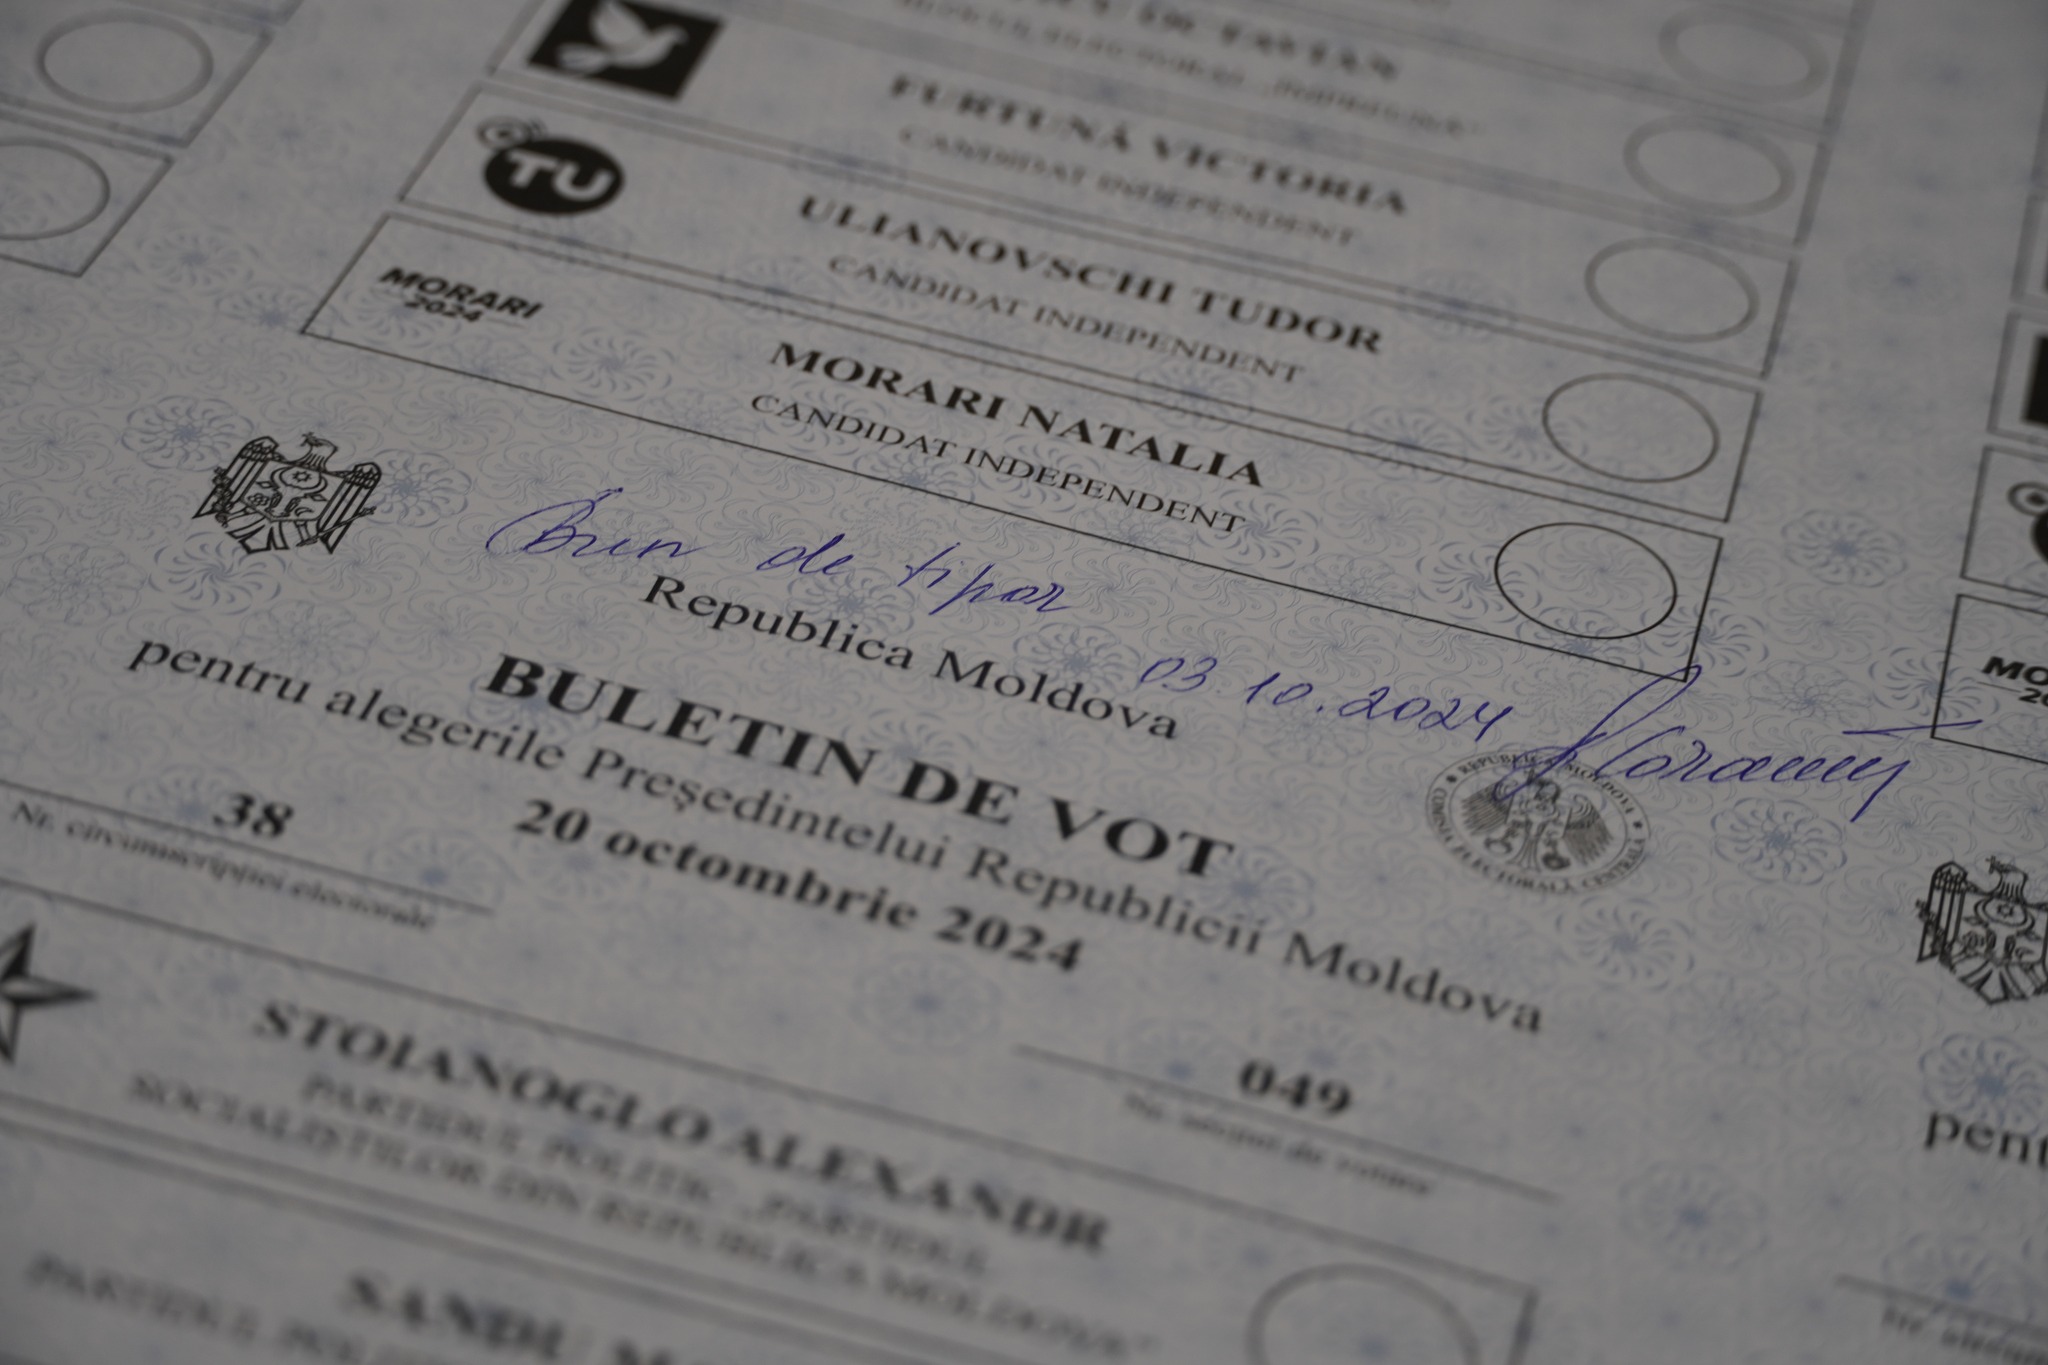 FURTUNĂ VICTORIA
CANDIDAT INDEPENDENT
TU
ULIANOVSCHI TUDOR
CANDIDAT INDEPENDENT
MORARI
2024
MORARI NATALIA
CANDIDAT INDEPENDENT
Bun de tipar
Republica Moldova
03.10.2024
BULETIN DE VOT
pentru alegerile Președintelui Republicii Moldova
20 octombrie 2024
REPUBLICA MOLDOVA
COMISIA ELECTORALĂ CENTRALĂ
38
Nr. circumscripției electorale
049
Nr. secției de votare
STOIANOGLO ALEXANDR
PARTIDUL POLITIC „PARTIDUL
SOCIALIȘTILOR DIN REPUBLICA MOLDOVA”
SANDU
PARTIDUL
MO
pent